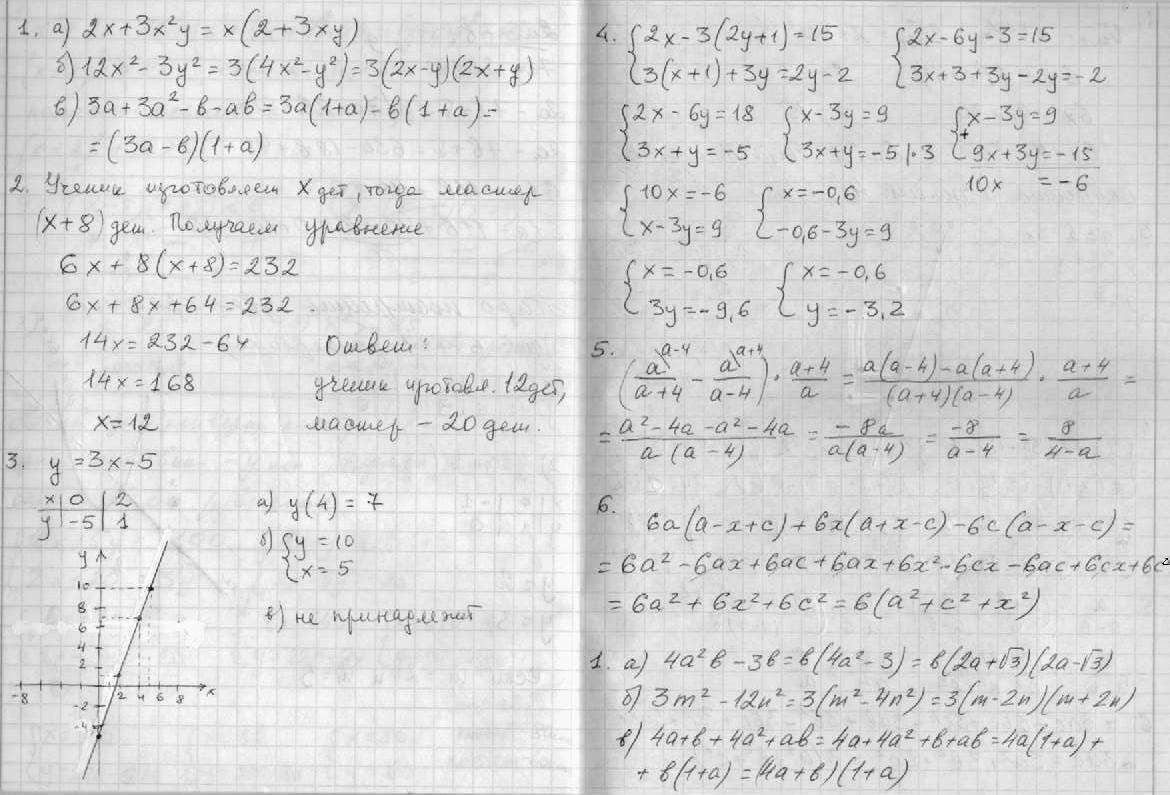 1. а) 2x+3x²y = x(2+3xy)
б) 12x² - 3y² = 3(4x²-y²) = 3(2x-y)(2x+y)
в) 3a+3a²-в-aв = 3a(1+a)-в(1+a) =
= (3a-в)(1+a)
2. Ученик изготовляет x дет, тогда мастер
(x+8) дет. Получаем уравнение
6x + 8(x+8) = 232
6x + 8x + 64 = 232
14x = 232 - 64
Ответ:
14x = 168
ученик изготовл. 12 дет,
x = 12
мастер - 20 дет.
3. y = 3x-5
x | 0 | 2
y | -5 | 1
а) y(4) = 7
б) {y = 10
{x = 5
в) не принадлежит
y
10
8
6
4
2
-8 2 4 6 8 x
-2
-4
4. {2x-3(2y+1)=15 {2x-6y-3=15
{3(x+1)+3y=2y-2 {3x+3+3y-2y=-2
{2x-6y=18 {x-3y=9 {x-3y=9
{3x+y=-5 {3x+y=-5 |·3 +{9x+3y=-15
10x = -6
{10x=-6 {x=-0,6
{x-3y=9 {-0,6-3y=9
{x=-0,6 {x=-0,6
{3y=-9,6 {y=-3,2
5. (a\ᵃ⁻⁴/(a+4) - a\ᵃ⁺⁴/(a-4)) · (a+4)/a = (a(a-4)-a(a+4))/((a+4)(a-4)) · (a+4)/a =
= (a²-4a-a²-4a)/(a(a-4)) = -8a/(a(a-4)) = -8/(a-4) = 8/(4-a)
6.
6a(a-x+c)+6x(a+x-c)-6c(a-x-c) =
= 6a²-6ax+6ac+6ax+6x²-6cx-6ac+6cx+6c²
= 6a²+6x²+6c² = 6(a²+c²+x²)
1. а) 4a²в-3в = в(4a²-3) = в(2a+√3)(2a-√3)
б) 3m²-12n² = 3(m²-4n²) = 3(m-2n)(m+2n)
в) 4a+в+4a²+aв = 4a+4a²+в+aв = 4a(1+a)+
+ в(1+a) = (4a+в)(1+a)